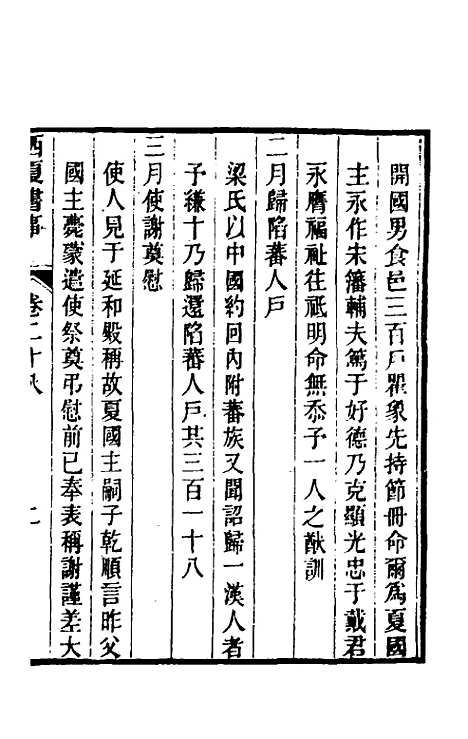 開國男食邑三百戶瞿象先持節冊命爾爲夏國
主永作宋籓輔夫篤于好德乃克顯光忠于戴君
永膺福祉往祇明命無忝予一人之猷訓
二月歸陷蕃人戶
梁氏以中國約回內附蕃族又聞詔歸一漢人者
予縑十乃歸還陷蕃人戶其三百一十八
三月使謝奠慰
使人見于延和殿稱故夏國主嗣子乾順言昨父
國主薨蒙遣使祭奠弔慰前已奉表稱謝謹差大
西夏書事
卷二十八
二